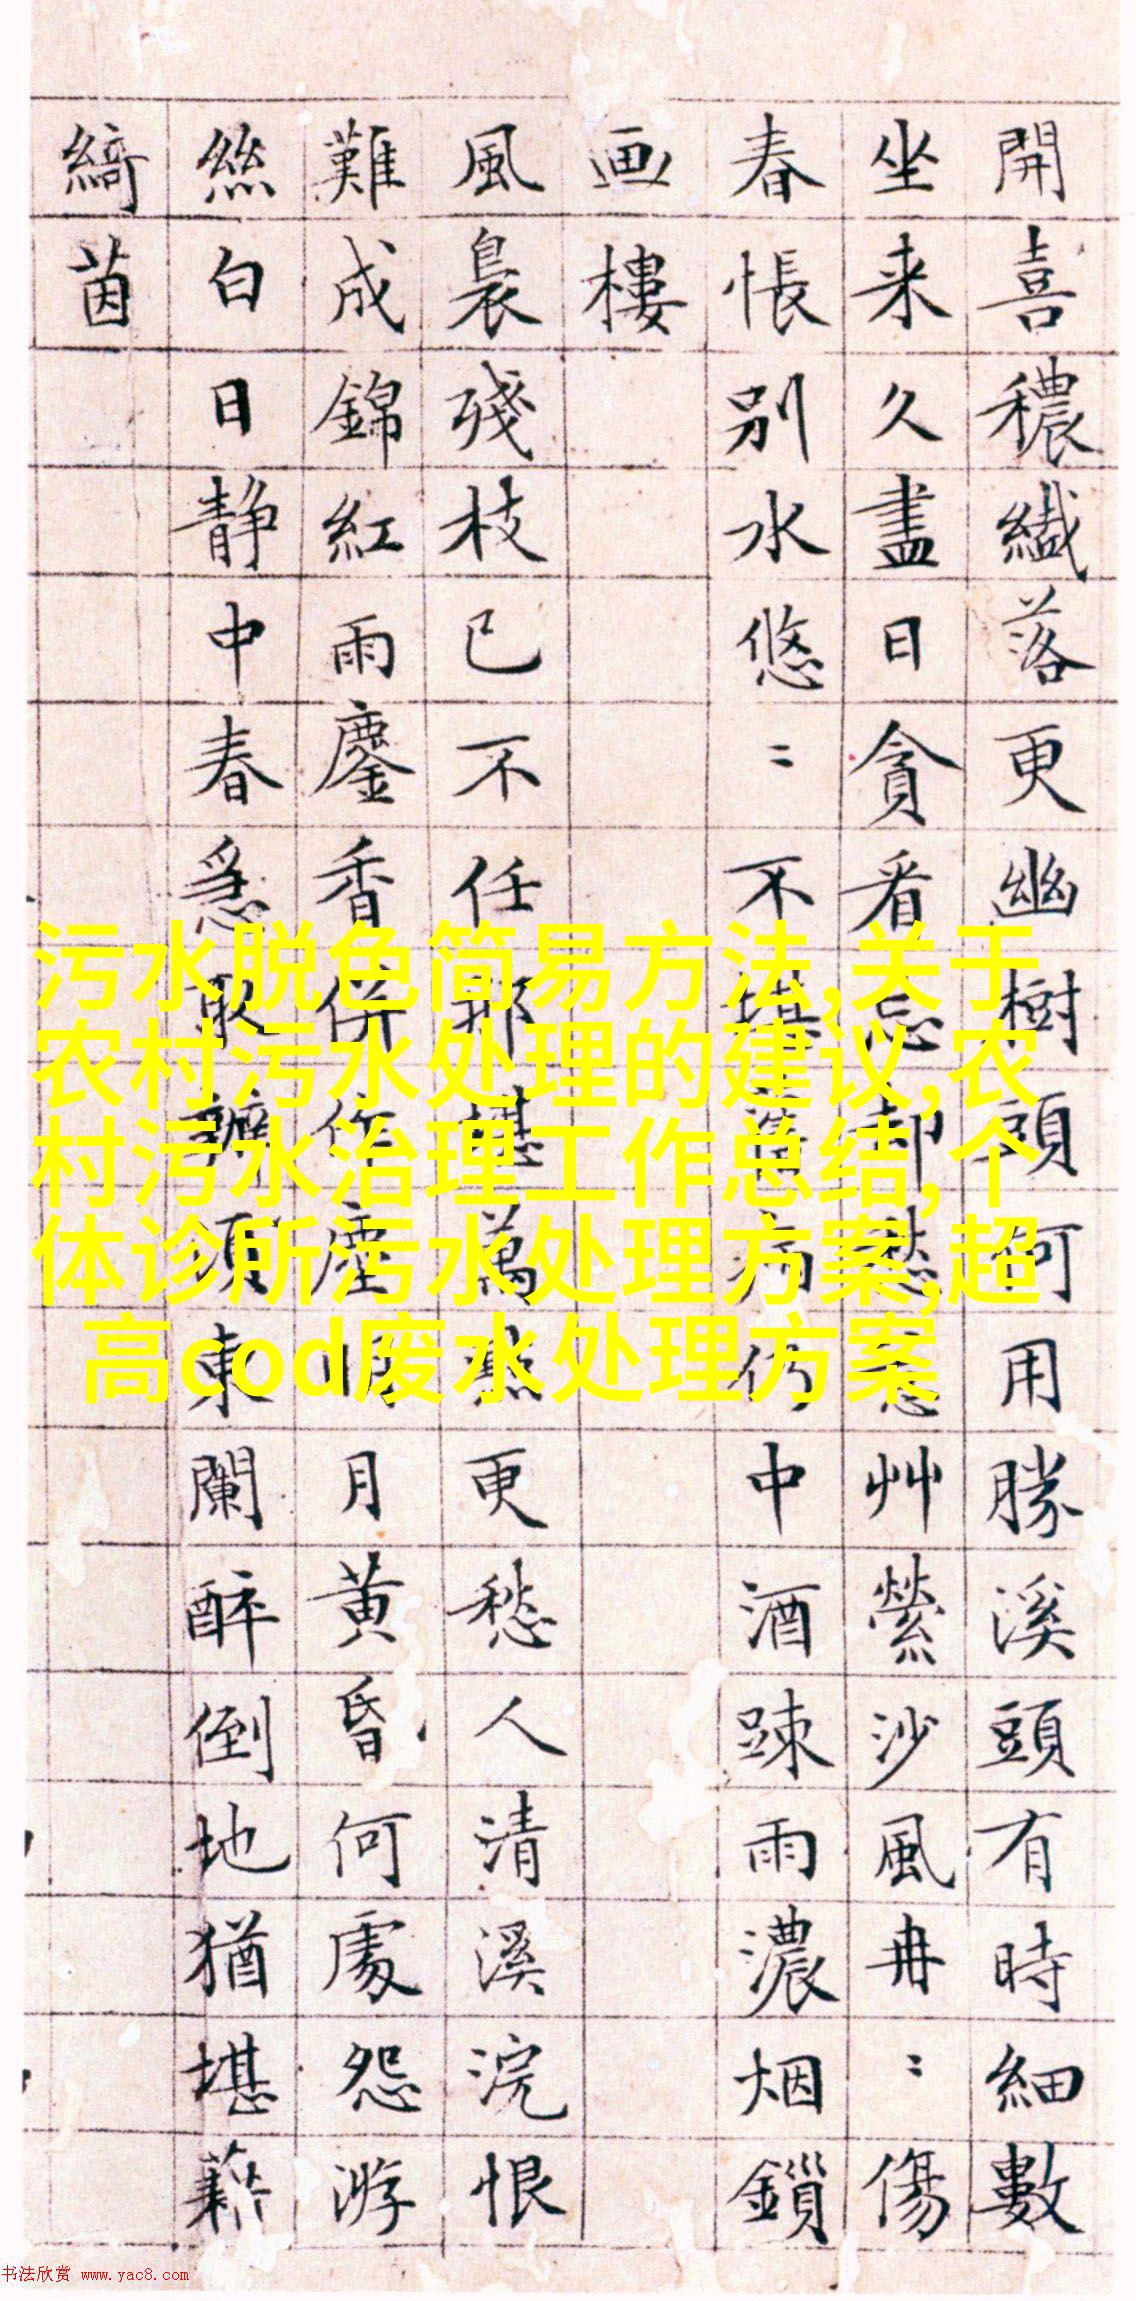 開喜穠纎落更幽樹頭何用勝溪頭有時細數
坐来久盡日貪看忘却愁惹艸縈沙風冉〻傷
春悵别水悠〻不堪舊病仍中酒踈雨濃烟鎖
画樓
風裊殘枝已不任那堪萬點更愁人清溪浣恨
難成錦紅雨鏖香併作塵明月黄昏何處怨游
絲白日静中春急取辦須東闌醉倒地猶堪藉
綺茵
污水脱色简易方法,关于
农村污水处理的建议,农
村污水治理工作总结,个
体诊所污水处理方案,超
高cod废水处理方案
书法欣赏 www.yac8.com